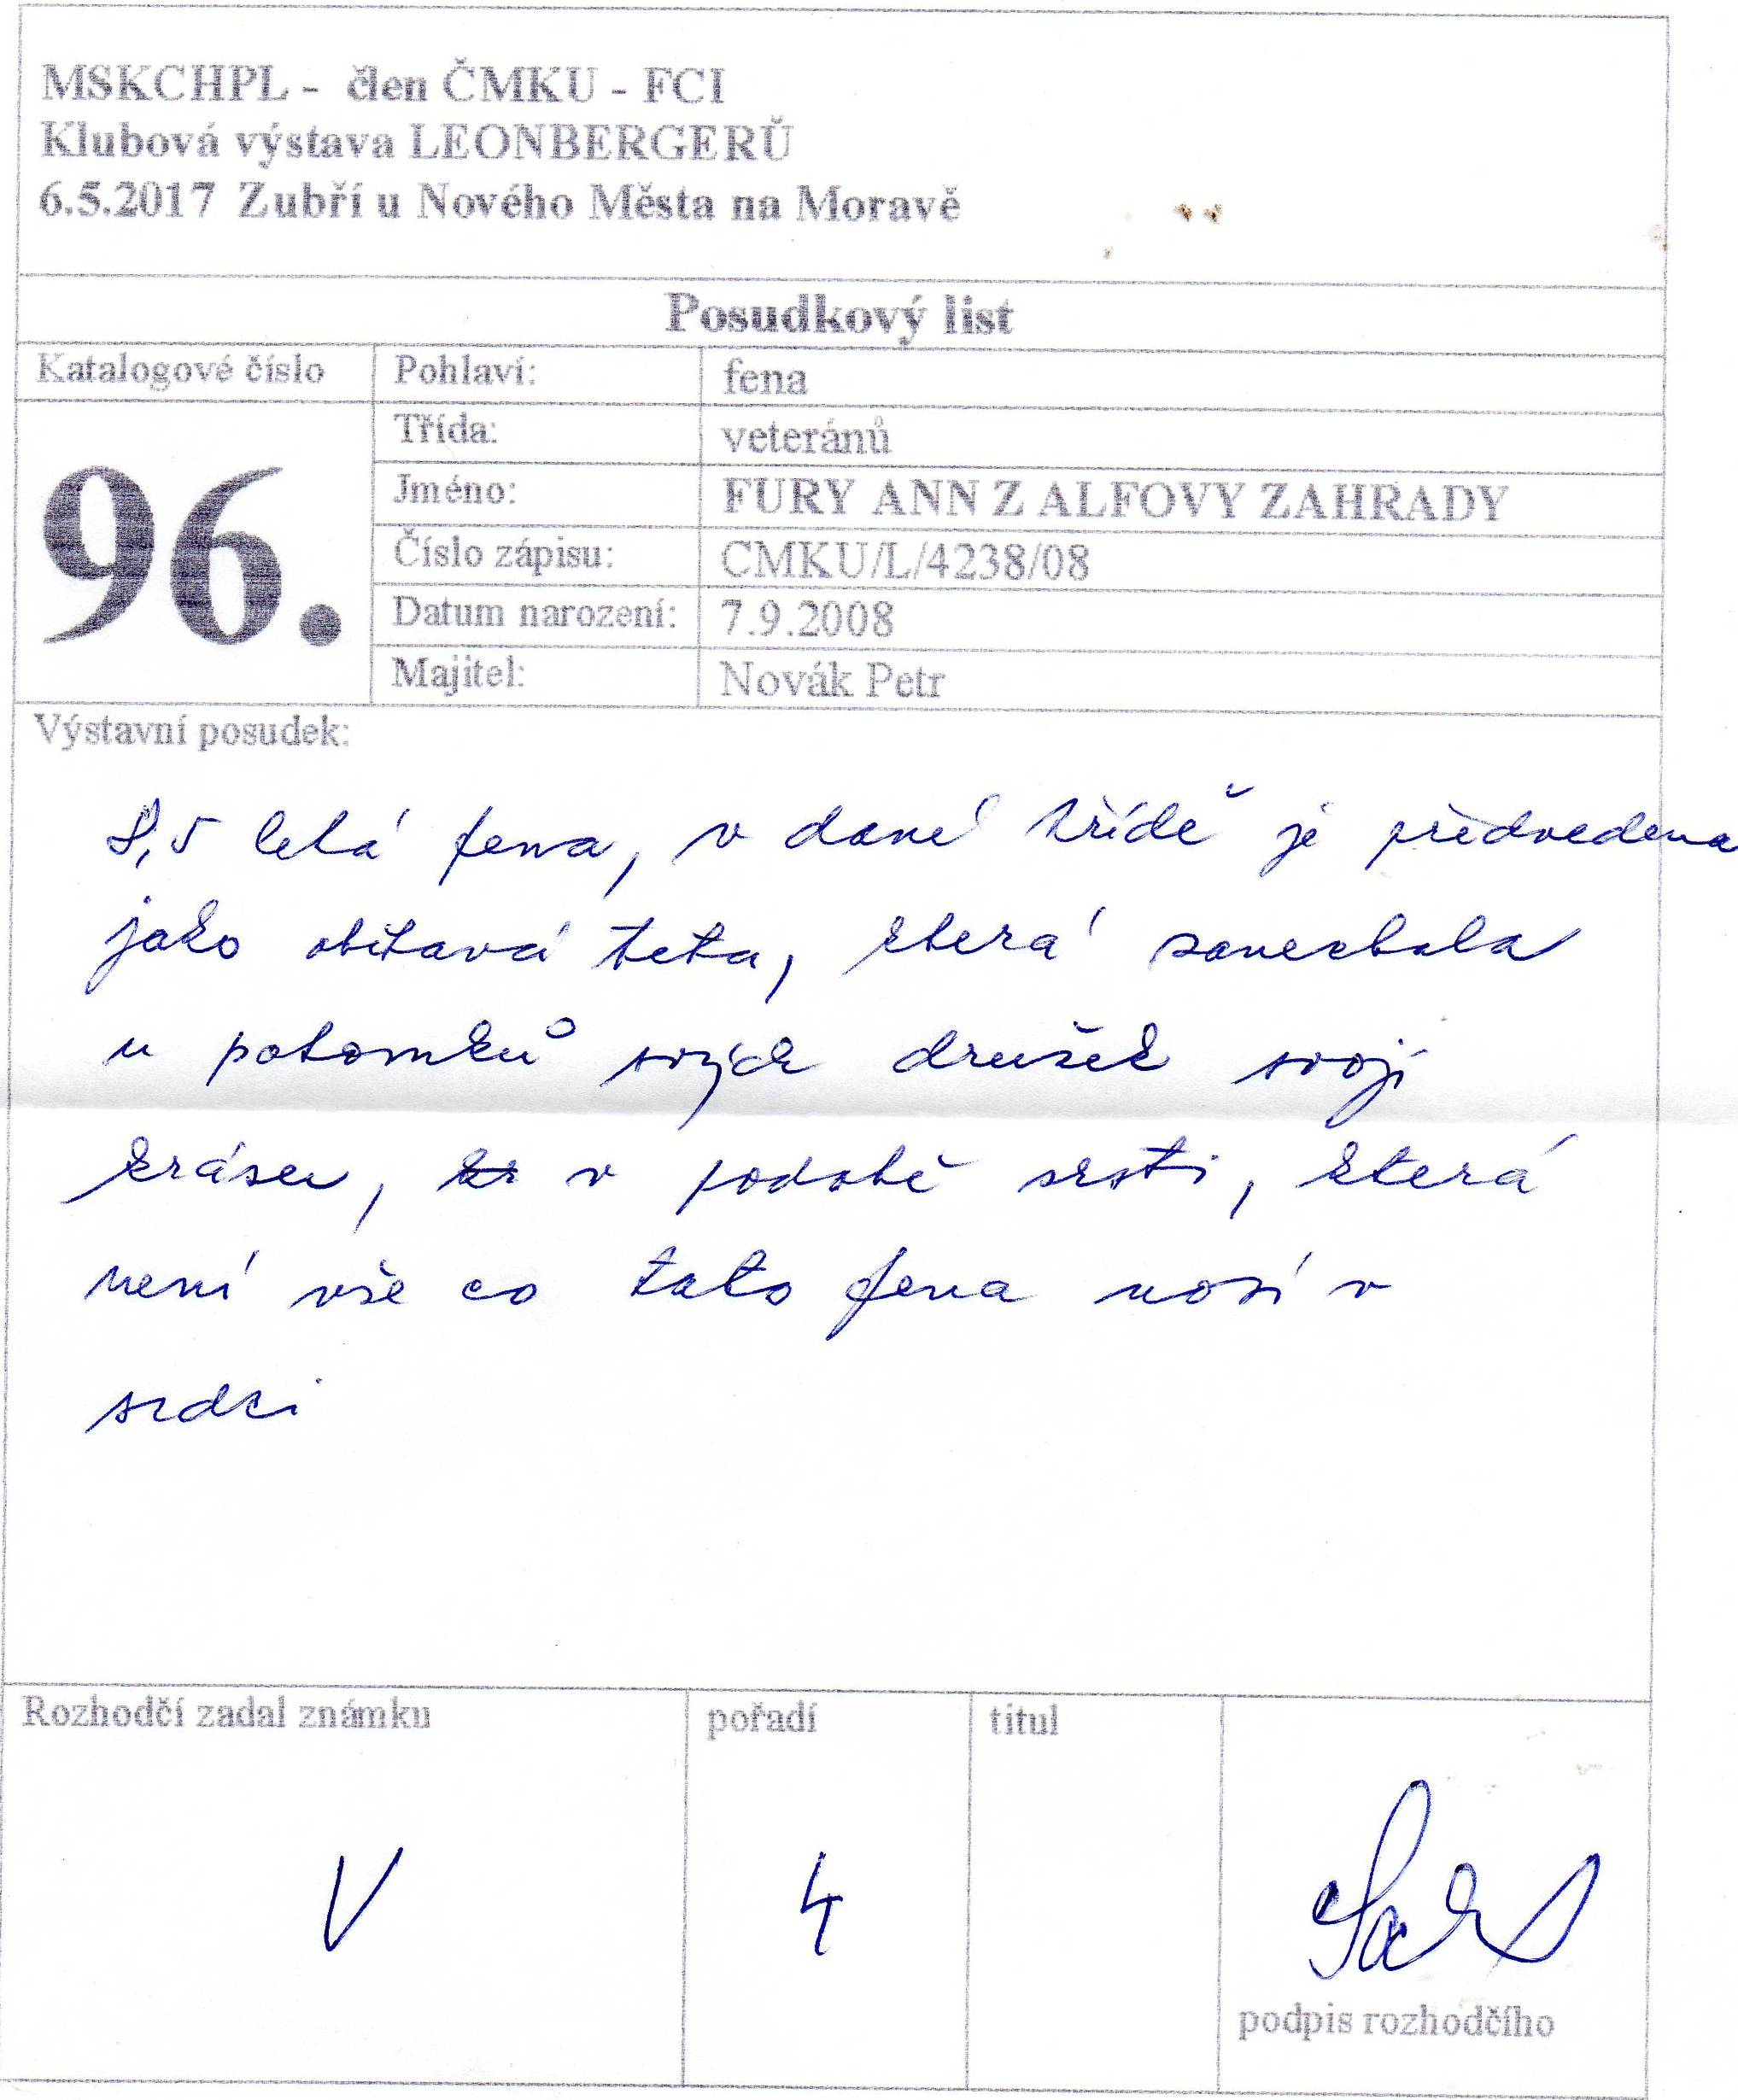 MSKCHPL - člen ČMKU - FCI
Klubová výstava LEONBERGERŮ
6.5.2017 Zubří u Nového Města na Moravě
Posudkový list
Katalogové číslo
96.
Pohlaví: fena
Třída: veteránů
Jméno: FURY ANN Z ALFOVY ZAHRADY
Číslo zápisu: CMKU/L/4238/08
Datum narození: 7.9.2008
Majitel: Novák Petr
Výstavní posudek:
8,5 letá fena, v dané třídě je předvedena
jako obětavá teta, která zanechala
u potomků svých družek svoji
krásu, v podobě srsti, která
není vše co tato fena nosí v
srdci
Rozhodčí zadal známku pořadí titul
V 4
podpis rozhodčího